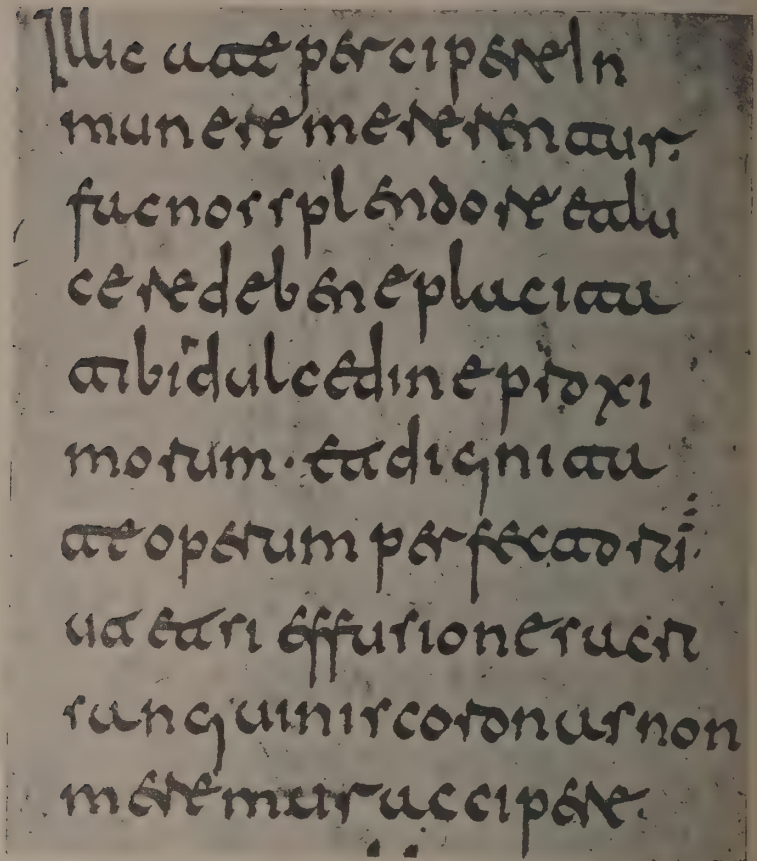 Illic a te percipere In
munere mererentur.
fac nos splendore et lu
cere de beneplacita
tibi dulcedine proxi
morum · et dignita
te operum perfectorũ.
ut etsi effusione sacri
sanguinis coronas non
meremur accipere.